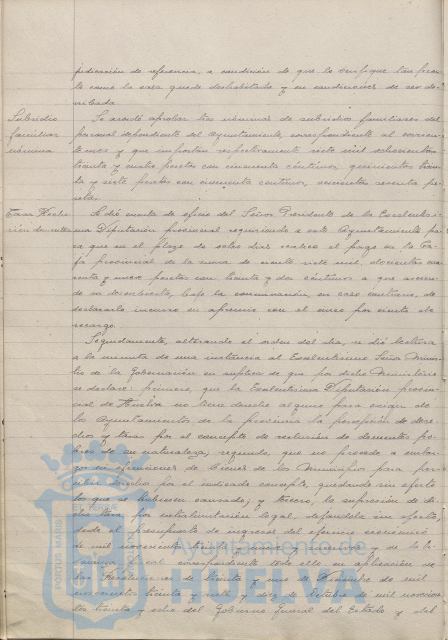 judicación de referencia, a condición de que lo verifique tan pron-
to como la casa quede deshabitada y en condiciones de ser de-
rribada.
Subsidio
familiar
nómina
Se acordó aprobar tres nóminas de subsidios familiares del
personal dependiente del Ayuntamiento, correspondiente al corriente
mes y que importan respectivamente siete mil ochocientas
treinta y cuatro pesetas con cincuenta céntimos, quinientas trein-
ta y siete pesetas con cincuenta céntimos, seiscientas sesenta pe-
setas.
Se dió cuenta de oficio del Señor Presidente de la Excelentísi-
ma Diputación provincial requiriendo a este Ayuntamiento pa-
ra que en el plazo de ocho días realice el pago en la Ca-
ja provincial de la suma de veinte siete mil, doscientas
y nueve pesetas con treinta y dos céntimos a que asciende
su descubierto, bajo la conminación, en caso contrario, de
declararlo incurso en apremio con el cinco por ciento de
recargo.
Seguidamente, alterando el orden del día, se dió lectura
a la minuta de una instancia al Excelentísimo Señor Minis-
tro de la Gobernación en súplica de que por dicho Ministerio
se declare: primero, que la Excelentísima Diputación provin-
cial de Huelva no tiene derecho alguno para exigir de
los Ayuntamientos de la provincia la percepción de dere-
chos y tasas por el concepto de reclusión de dementes po-
bres de su naturaleza; segundo, que no procede a embar-
go ni ejecuciones de bienes de los Municipios para per-
cibir derechos por el indicado concepto, quedando sin efecto
los que se hubiesen causado; y tercero, la supresión de di-
cha tasa por extralimitación legal, dejándola sin efecto,
desde el presupuesto de ingresos del ejercicio económico
de mil novecientos treinta y
correspondiente todo ello en aplicación de
las de treinta y uno de Diciembre de mil
novecientos treinta y siete y diez de Octubre de mil novecien-
tos treinta y ocho del Gobierno General del Estado y del
Ayuntamiento de
HUELVA
PORTUS MARIS